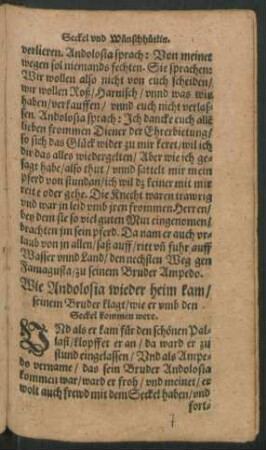 Seckel vnd Wünschhütlin.
verlieren. Andolosia sprach: Von meinet
wegen sol niemands fechten. Sie sprachen:
Wir wollen also nicht von euch scheiden/
wir wollen Roß/Harnisch/ vnnd was wir
haben/verkauffen/ vnnd euch nicht verlas-
sen. Andolosia sprach: Ich dancke euch alle
lieben frommen Diener der Ehrerbietung/
so sich das Glück wider zu mir keret/wil ich
dir das alles wiedergelten/ Aber wie ich ge-
sagt habe/also thut/ vnnd sattelt mir mein
pferd von stundan/ich wil dz keiner mit mir
reite oder gehe. Die Knecht waren trawrig
vnd war in leid vmb jren frommen Herren/
bey dem sie so viel guten Mut eingenomen/
brachten jm sein pferd. Da nam er auch vr-
laub von jn allen/saß auff/ritt vñ fuhr auff
Wasser vnnd Land/ den nechsten Weg gen
Famagusta/zu seinem Bruder Ampedo.
Wie Andolosia wieder heim kam/
seinem Bruder klagt/wie er vmb den
Seckel kommen were.
VND als er kam für den schönen Pal-
last/klopffet er an/ da ward er zu
stund eingelassen/ Vnd als Ampe-
do vername/ das sein Bruder Andolosia
kommen war/ward er froh/ vnd meinet/ er
wolt auch frewd mit dem Seckel haben/vnd
fort-